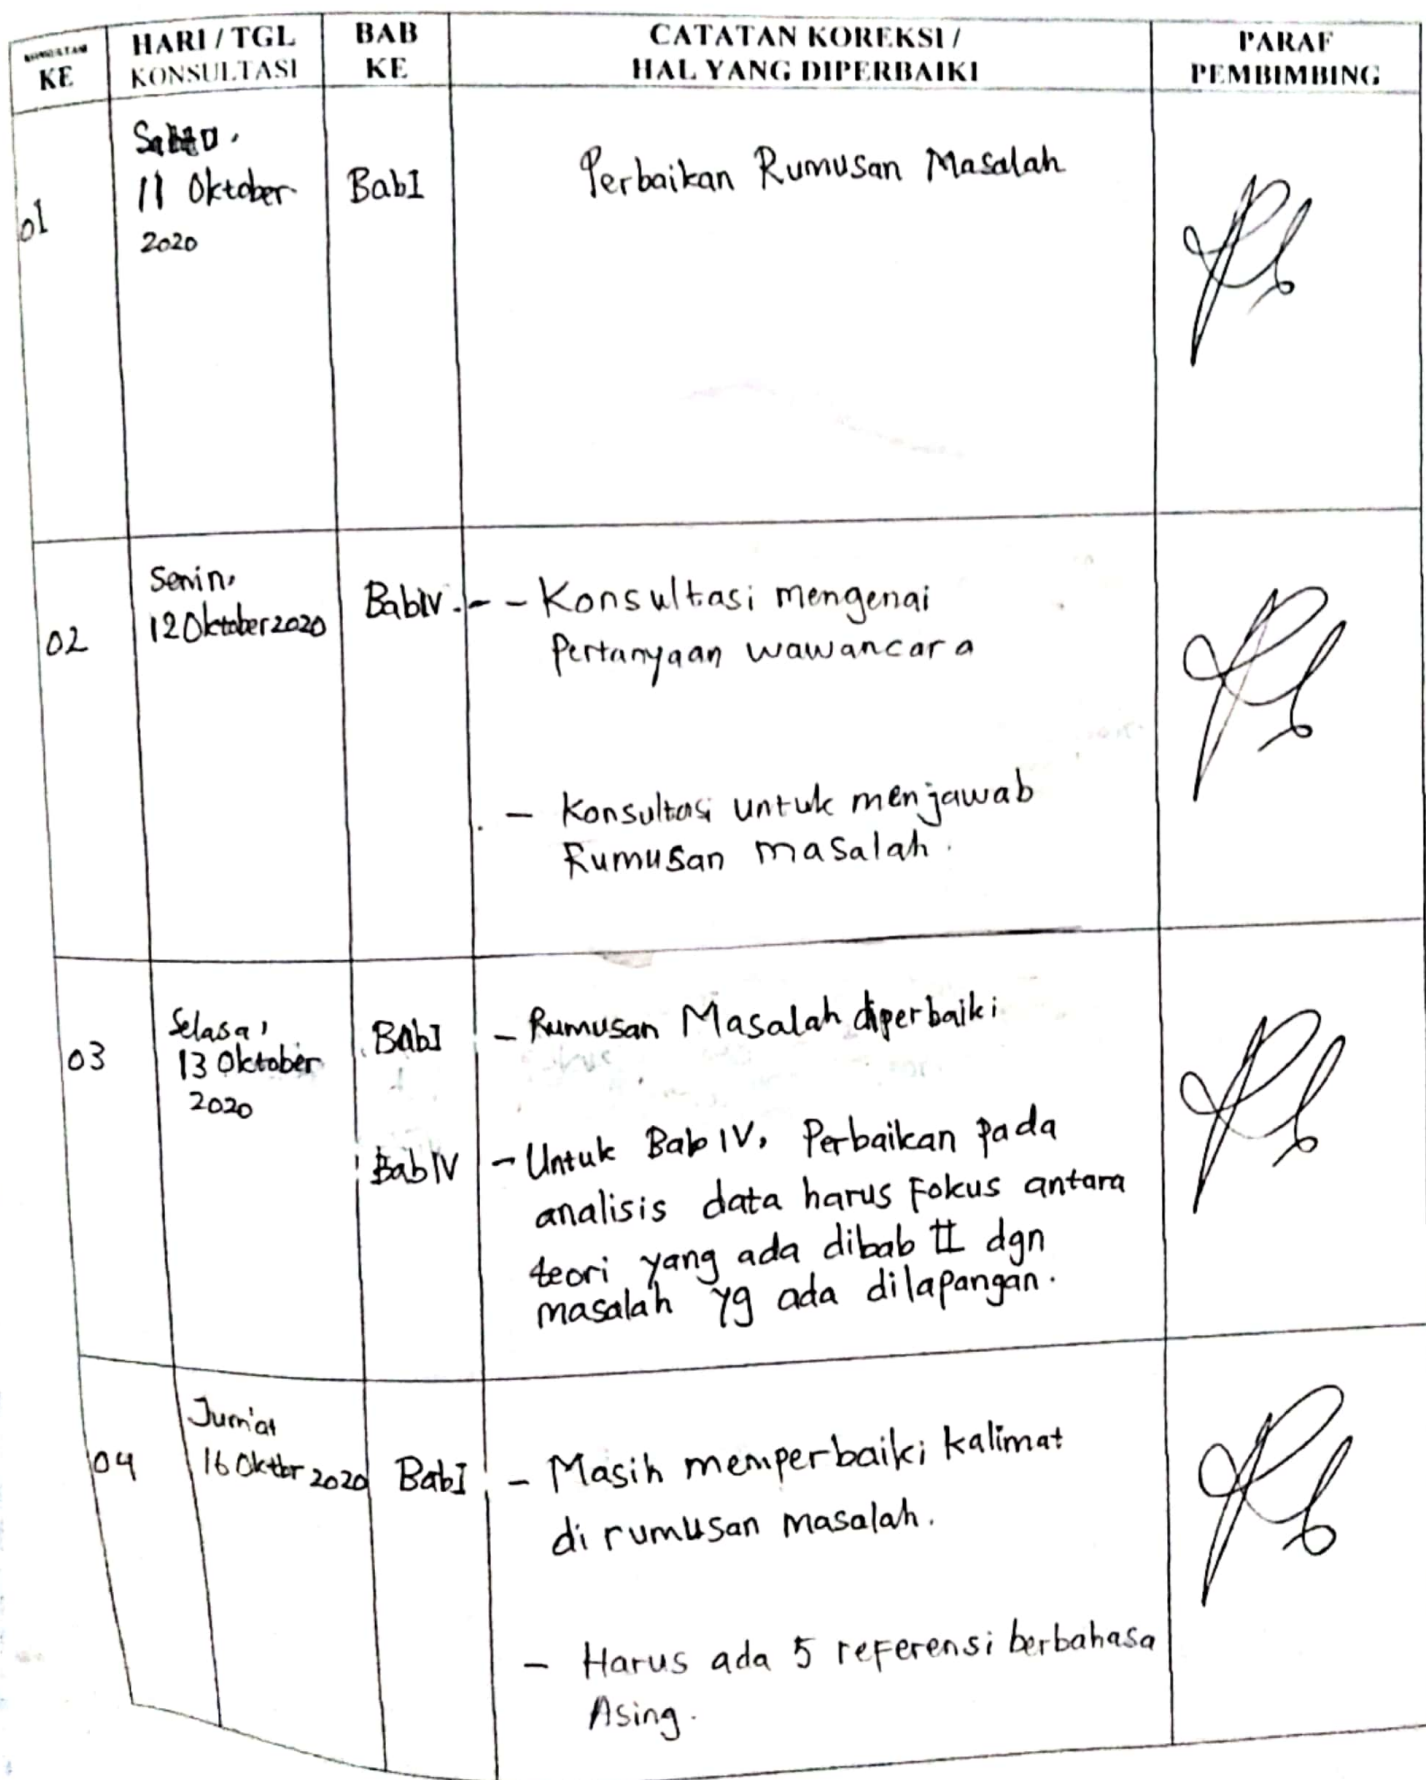 KONSULTASI KE
HARI / TGL
KONSULTASI
BAB
KE
CATATAN KOREKSI /
HAL YANG DIPERBAIKI
PARAF
PEMBIMBING
01
Sabtu,
11 Oktober
2020
Bab I
Perbaikan Rumusan Masalah
02
Senin,
12 Oktober 2020
Bab IV.
- - Konsultasi mengenai
Pertanyaan wawancara
- Konsultasi untuk menjawab
Rumusan masalah.
03
Selasa,
13 Oktober
2020
Bab I
- Rumusan Masalah diperbaiki
Bab IV
- Untuk Bab IV, Perbaikan pada
analisis data harus Fokus antara
teori yang ada dibab II dgn
masalah yg ada dilapangan.
04
Jum'at
16 Oktbr 2020
Bab I
- Masih memperbaiki kalimat
di rumusan masalah.
- Harus ada 5 referensi berbahasa
Asing.